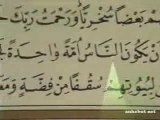 بَعْضًا سُخْرِيًّا وَرَحْمَتُ رَبِّكَ
أَن يَكُونَ النَّاسُ أُمَّةً وَاحِدَةً
لِبُيُوتِهِمْ سُقُفًا مِّن فِضَّةٍ